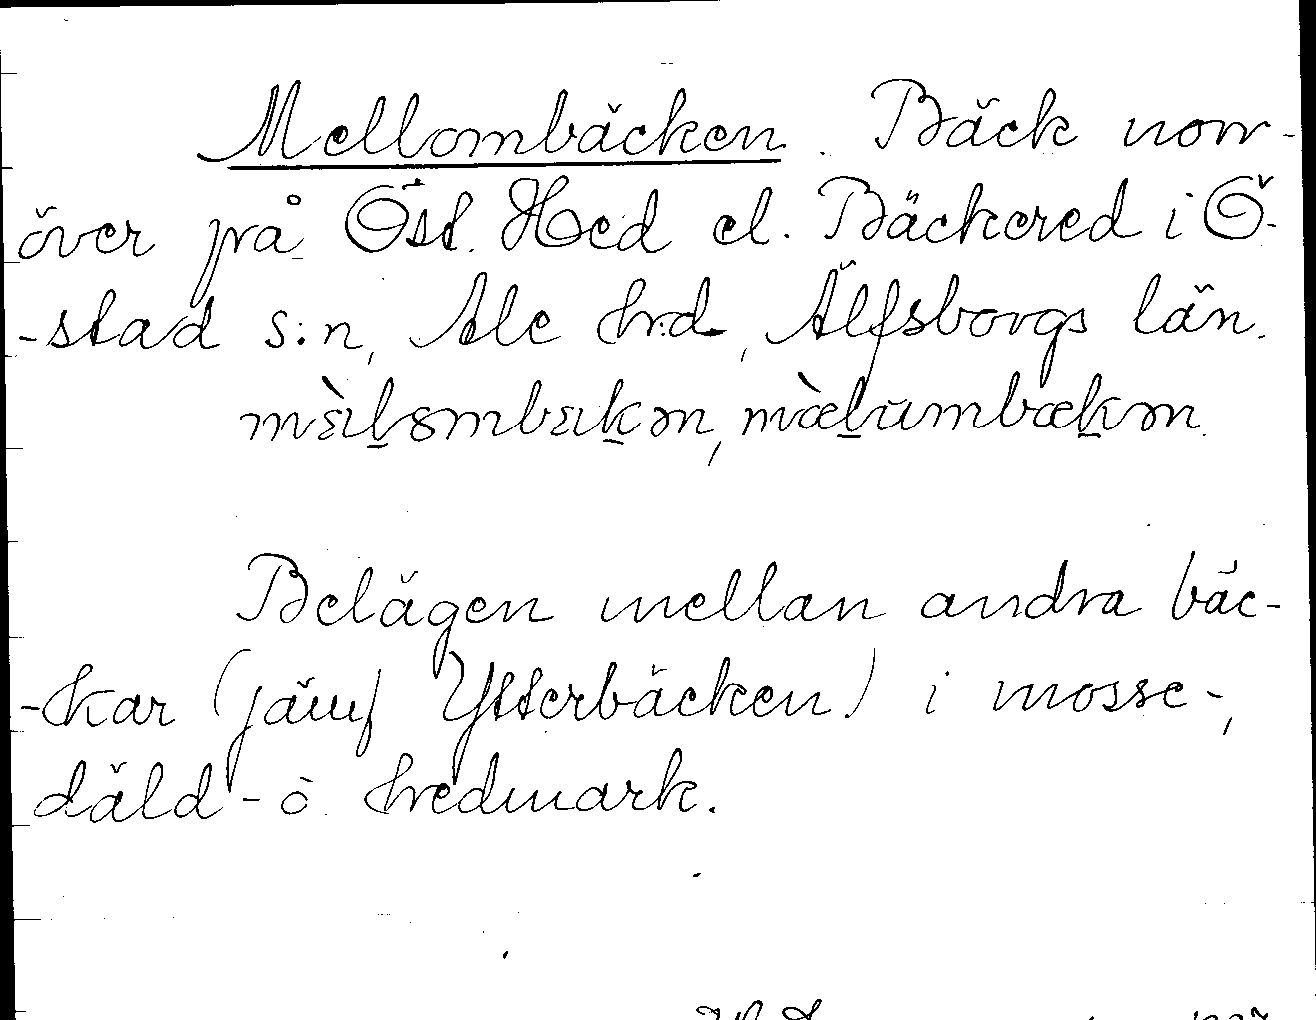 Mellombäcken. Bäck norr-
över på Öst. Hed el. Bäckered i Ö-
-stad s:n, Ale hrd, Älfsborgs län.
Belägen mellan andra bäc-
-kar (jämf Ytterbäcken) i mosse-,
däld- o. hedmark.